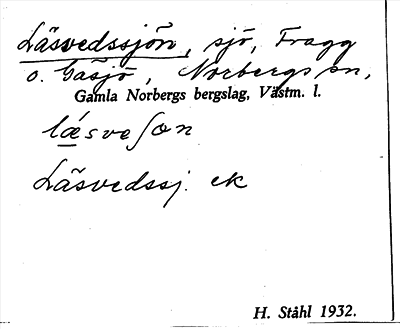 Läsvedssjön, sjö, Fragg
o. Gåsjö, Norbergs sn,
Gamla Norbergs bergslag, Västm. l.
læsveʃøn
Läsvedssj. ek
H. Ståhl 1932.